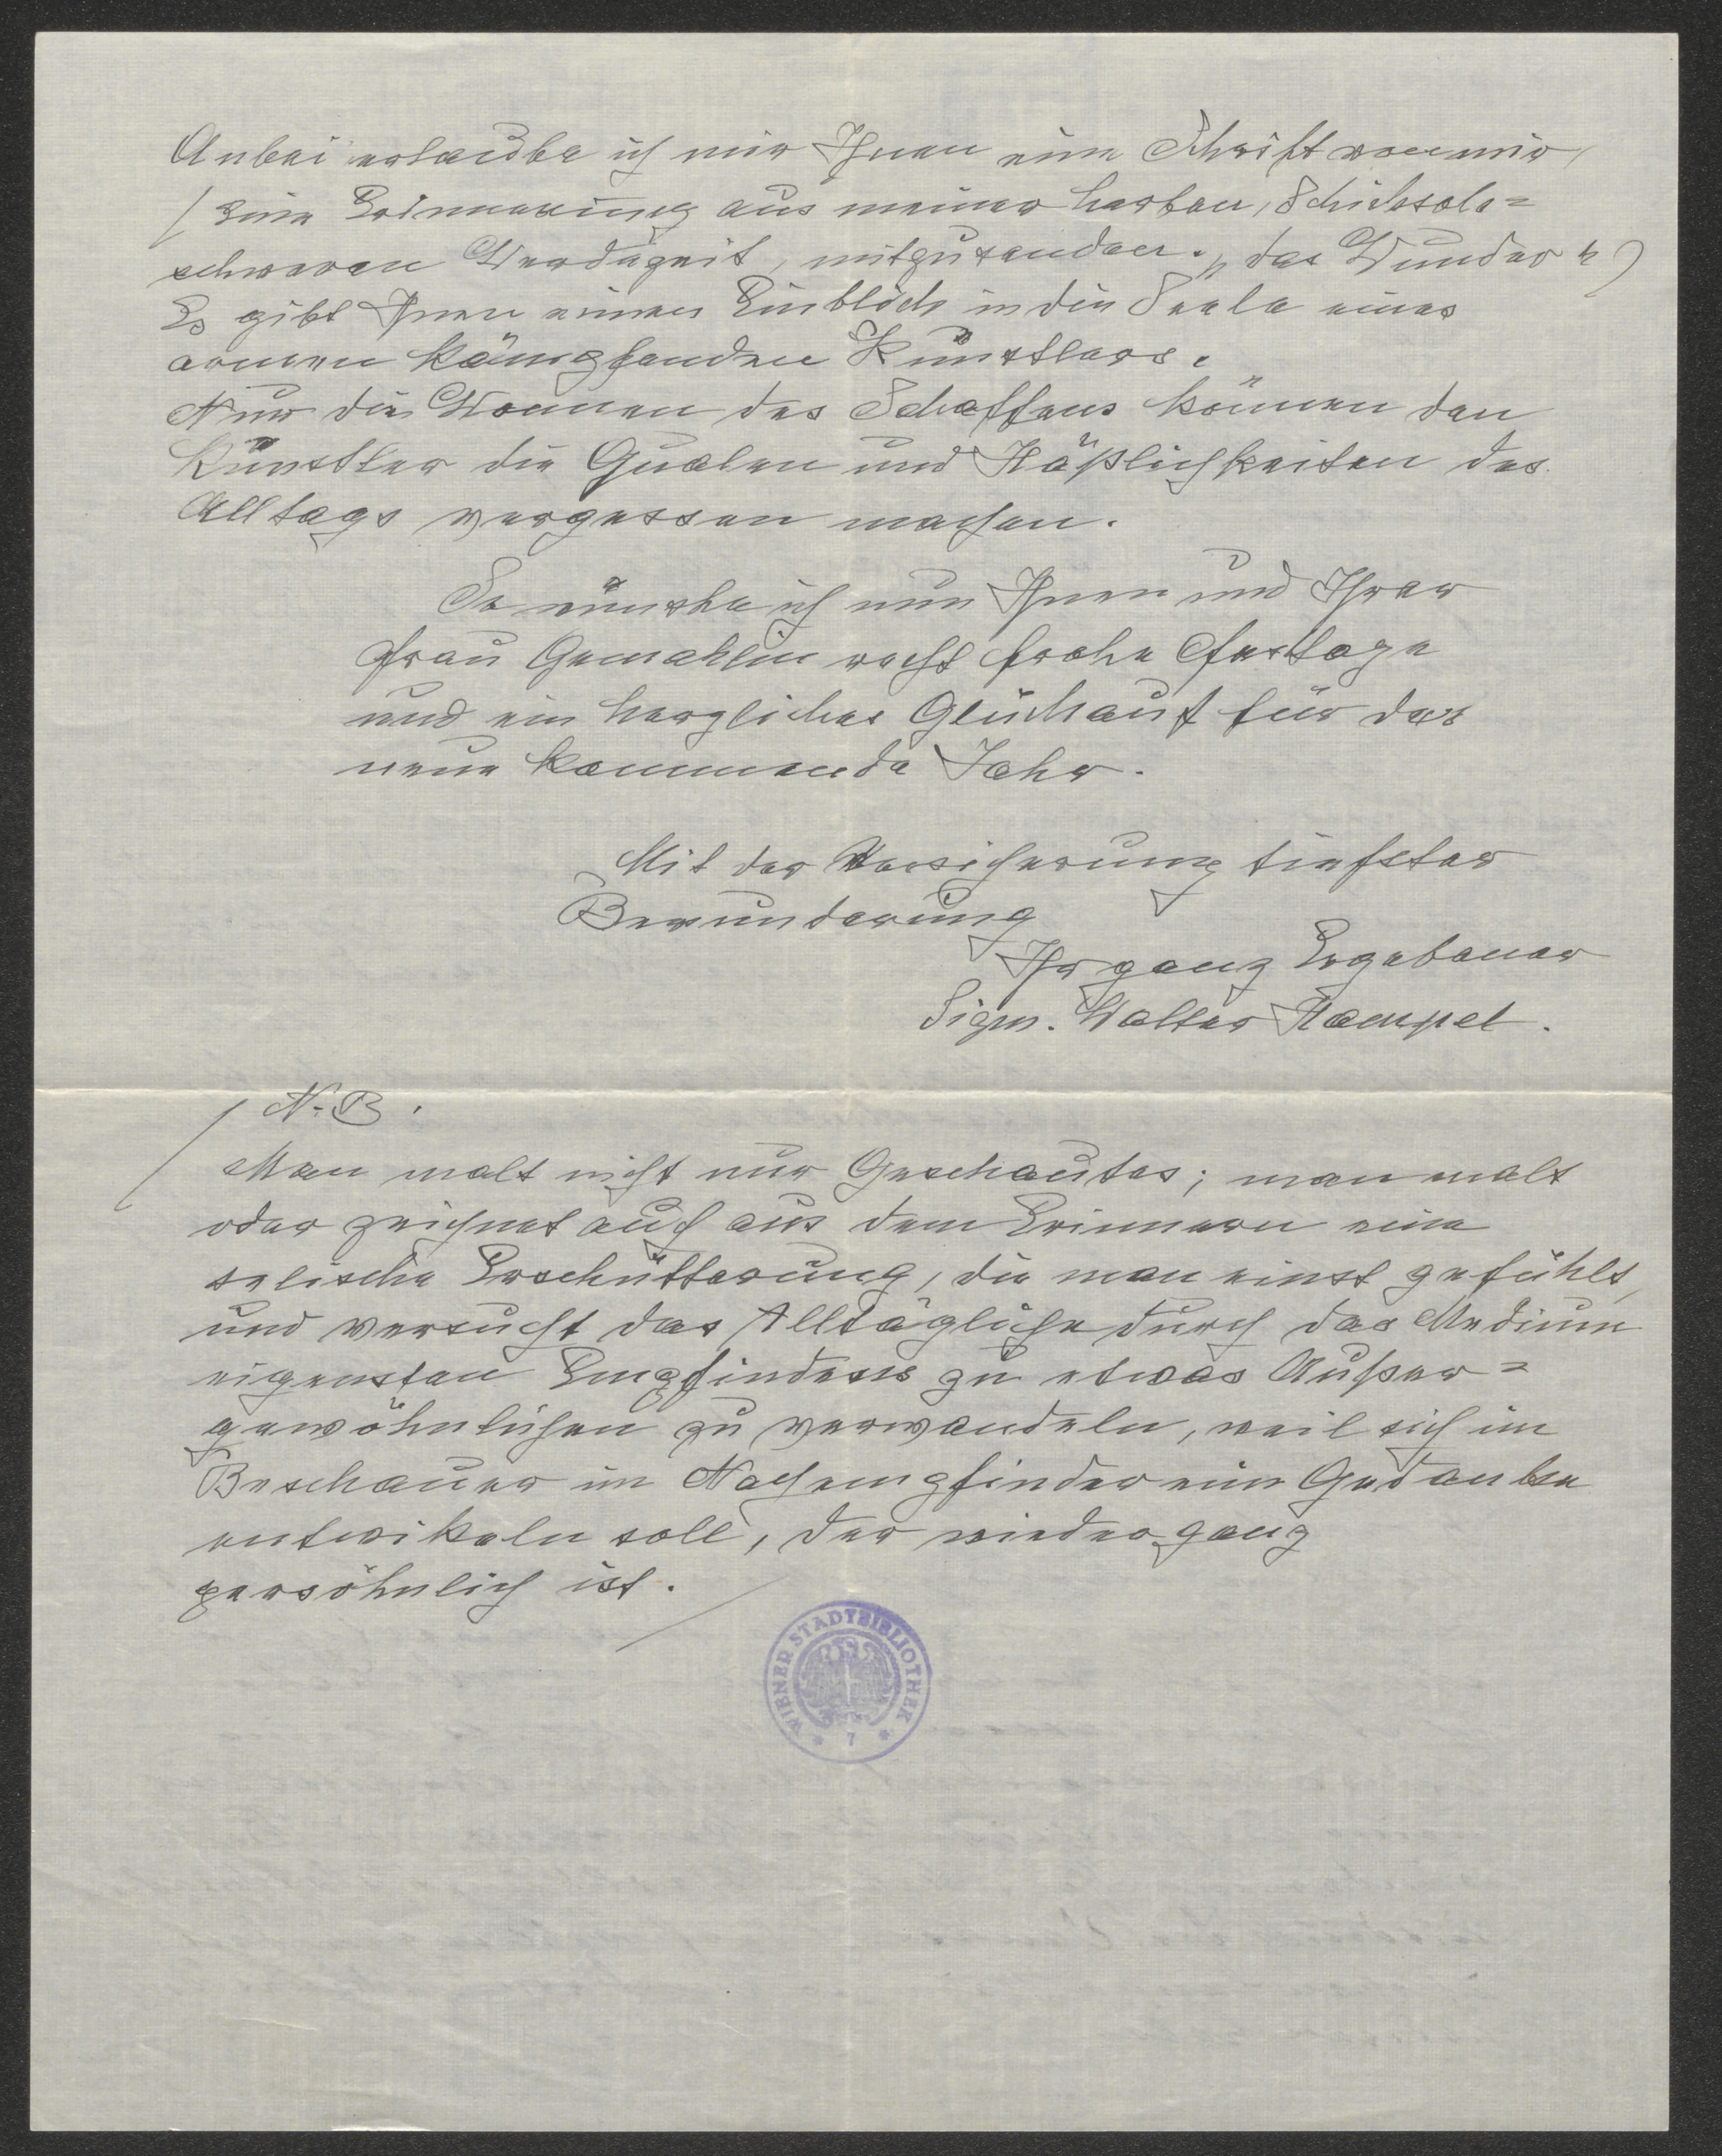 Anbei erlaube ich mir Ihnen eine Schrift von mir,
(Eine Erinnerung aus meiner harten, Schicksals=
schweren Werdezeit, mitzusenden. „das Wunder“)
Es gibt Ihnen einen Einblick in die Seele eines
armen kämpfenden Künstlers.
Nur die Wonnen des Schaffens können den
Künstler die Qualen und Häßlichkeiten des
Alltags vergessen machen.
So wünsche ich nun Ihnen und Ihrer
Frau Gemahlin recht frohe Festtage
und ein herzliches Glückauf für das
neue kommende Jahr.
Mit der Versicherung tiefster
Bewunderung
Ihr ganz Ergebener
Sigm. Walter Hampel.
N.B.
Man malt nicht nur Geschautes; man malt
oder zeichnet auch aus dem Erinnern eine
selische Erschütterung, die man einst gefühlt,
und versucht das Alltägliche durch das Medium
eigensten Empfindens zu etwas Außer=
gewöhnlichen zu verwandeln, weil sich im
Beschauer im Nachempfinder ein Gedanke
entwikeln soll, der wieder ganz
persöhnlich ist.
WIENER STADTBIBLIOTHEK
* 7 *